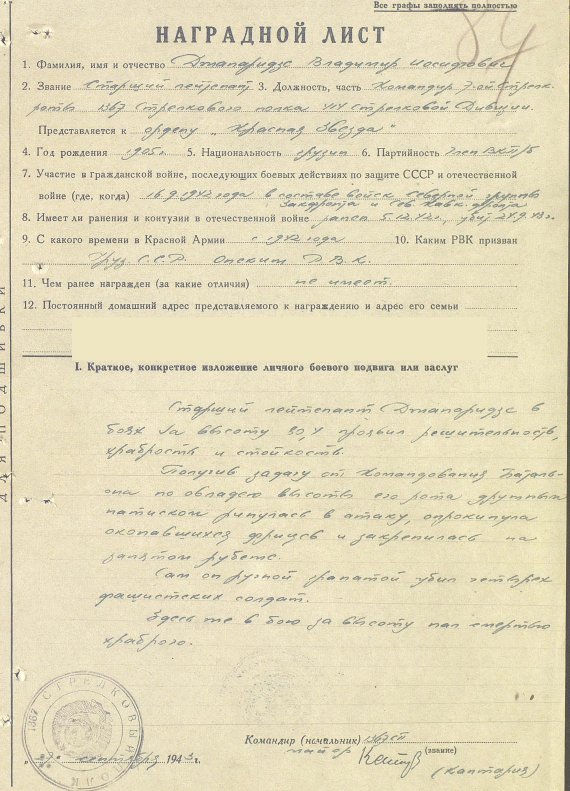 Все графы заполнять полностью
84
НАГРАДНОЙ ЛИСТ
1. Фамилия, имя и отчество Джапаридзе Владимир Иосифович
2. Звание Старший лейтенант 3. Должность, часть Командир 7-ой стрелк.
роты 1367 Стрелкового полка 414 Стрелковой Дивизии.
Представляется к ордену „Красная Звезда"
4. Год рождения 1905 г. 5. Национальность грузин 6. Партийность член ВКП/б
7. Участие в гражданской войне, последующих боевых действиях по защите СССР и отечественной
войне (где, когда) 16.9.1942 года в составе войск Северной группы
Закфронта и Сев. Кавк. фронта
8. Имеет ли ранения и контузии в отечественной войне ранен 5.12.42г., убит 24.9.43г.
9. С какого времени в Красной Армии с 1942 года 10. Каким РВК призван
Груз. С.С.Р. Р.В.К.
11. Чем ранее награжден (за какие отличия) не имеет.
12. Постоянный домашний адрес представляемого к награждению и адрес его семьи
ДЛЯ ПОДШИВКИ
I. Краткое, конкретное изложение личного боевого подвига или заслуг
Старший лейтенант Джапаридзе в
боях за высоту 90,4 проявил решительность,
храбрость и стойкость.
Получив задачу от командования баталь-
она по овладею высоты его рота дружным
натиском ринулась в атаку, опрокинула
окопавшихся фрицев и закрепилась на
занятом рубеже.
Сам он ручной гранатой убил четырех
фашистских солдат.
Здесь же в бою за высоту пал смертью
храброго.
1367 СТРЕЛКОВЫЙ ПОЛК
Командир (начальник) 1367 сп
майор (звание)
(Кантария)
сентября 1943 г.